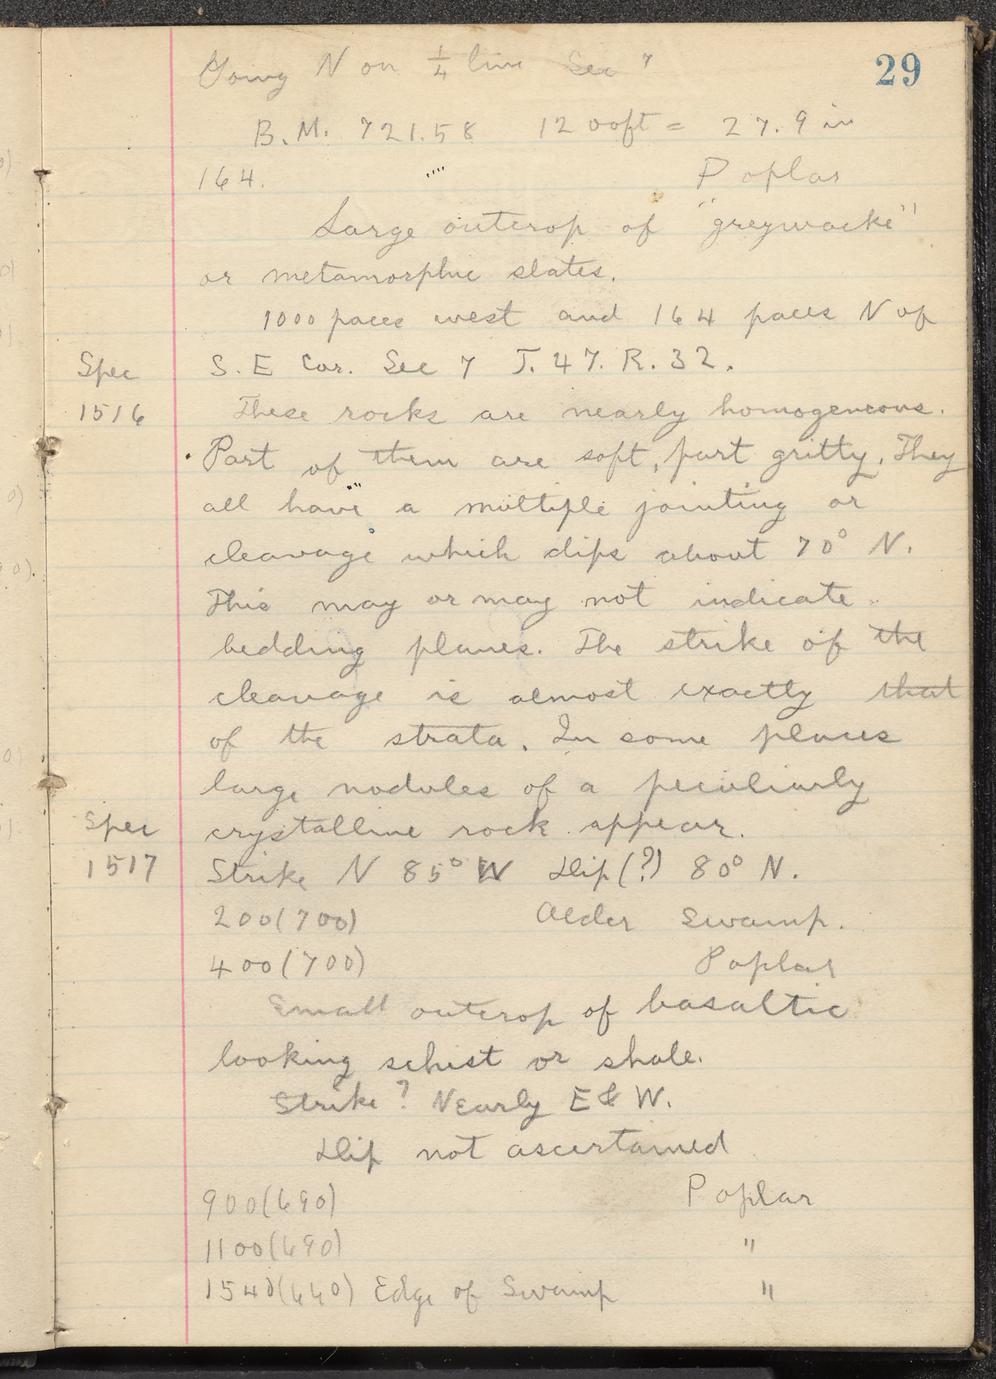 29
Going N on 1/4 line Sec 7
B.M. 721.58 1200ft = 27.9 in
164. Poplar
Large outcrop of "greywacke"
or metamorphic slates.
1000 paces west and 164 paces N of
Spec S.E Cor. Sec 7 T.47. R.32.
1516 These rocks are nearly homogeneous.
Part of them are soft, part gritty. They
all have a multiple jointing or
cleavage which dips about 70° N.
This may or may not indicate
bedding planes. The strike of the
cleavage is almost exactly that
of the strata. In some places
large nodules of a peculiarly
Spec crystalline rock appear.
1517 Strike N 85° W Dip(?) 80° N.
200(700) Alder Swamp.
400(700) Poplar
Small outcrop of basaltic
looking schist or shale.
Strike? Nearly E & W.
Dip not ascertained
900(690) Poplar
1100(690) "
1540(640) Edge of Swamp "